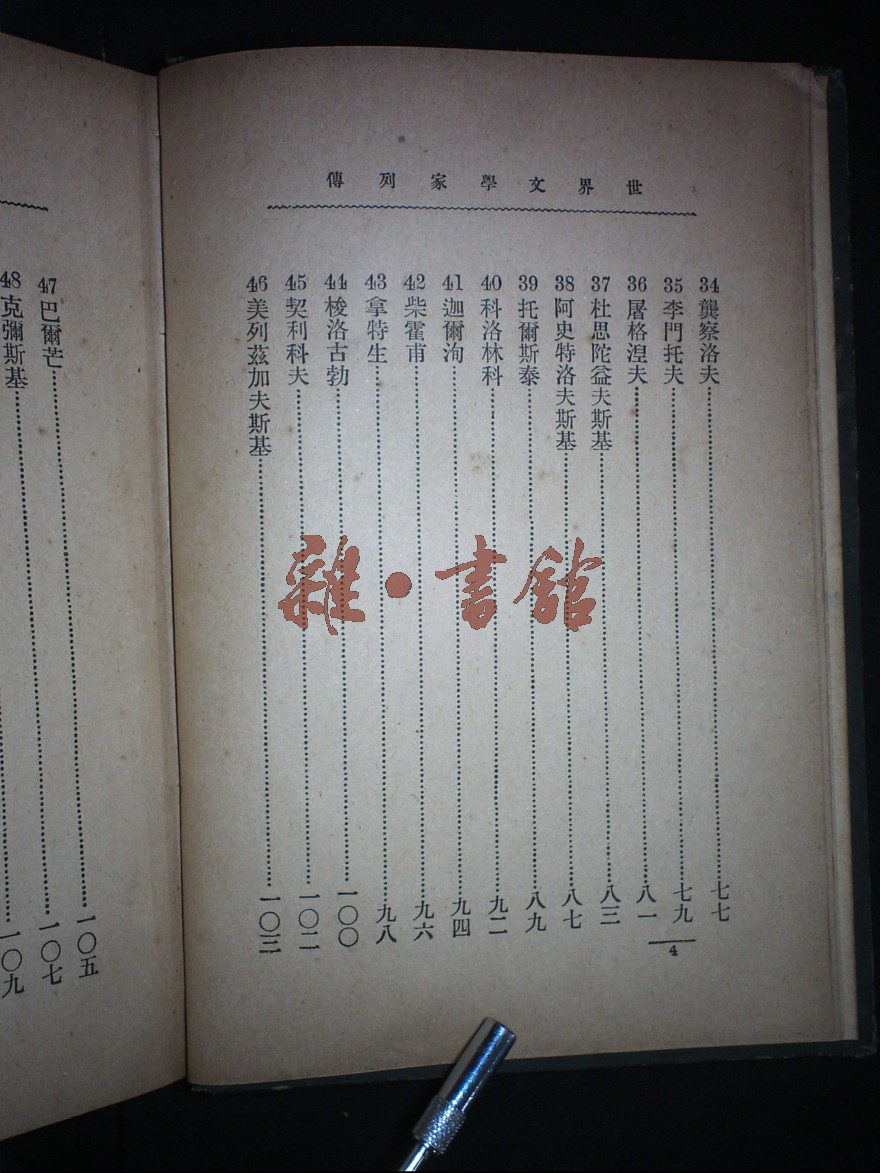 世界文學家列傳
34 龔察洛夫………七七
35 李門托夫………七九
36 屠格涅夫………八一
37 杜思陀益夫斯基………八三
38 阿史特洛夫斯基………八七
39 托爾斯泰………八九
40 科洛林科………九二
41 迦爾洵………九四
42 柴霍甫………九六
43 拿特生………九八
44 梭洛古勃………一〇〇
45 契利科夫………一〇二
46 美列茲加夫斯基………一〇三
4
47 巴爾芒………一〇五
48 克彌斯基………一〇七
一〇九
雜·書館